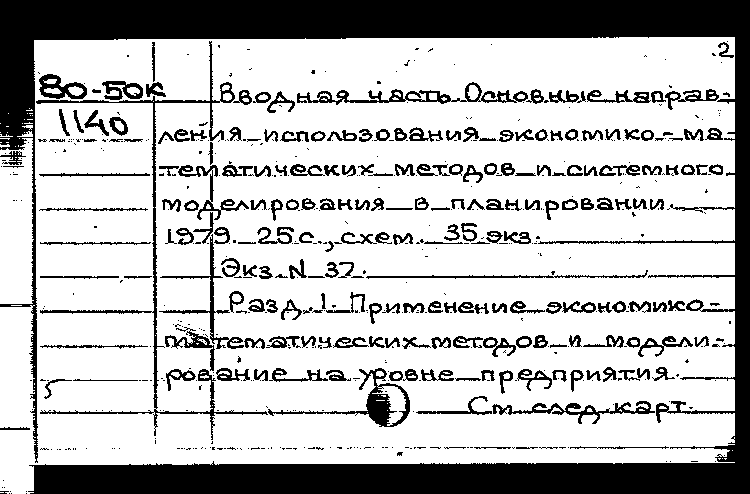 2
80-50к Вводная часть. Основные направ-
1140 ления использования экономико-ма-
тематических методов и системного
моделирования в планировании.
1979. 25 с., схем. 35 экз.
Экз. N 37.
Разд. 1. Применение экономико-
математических методов и модели-
рование на уровне предприятия.
5 См. след. карт.